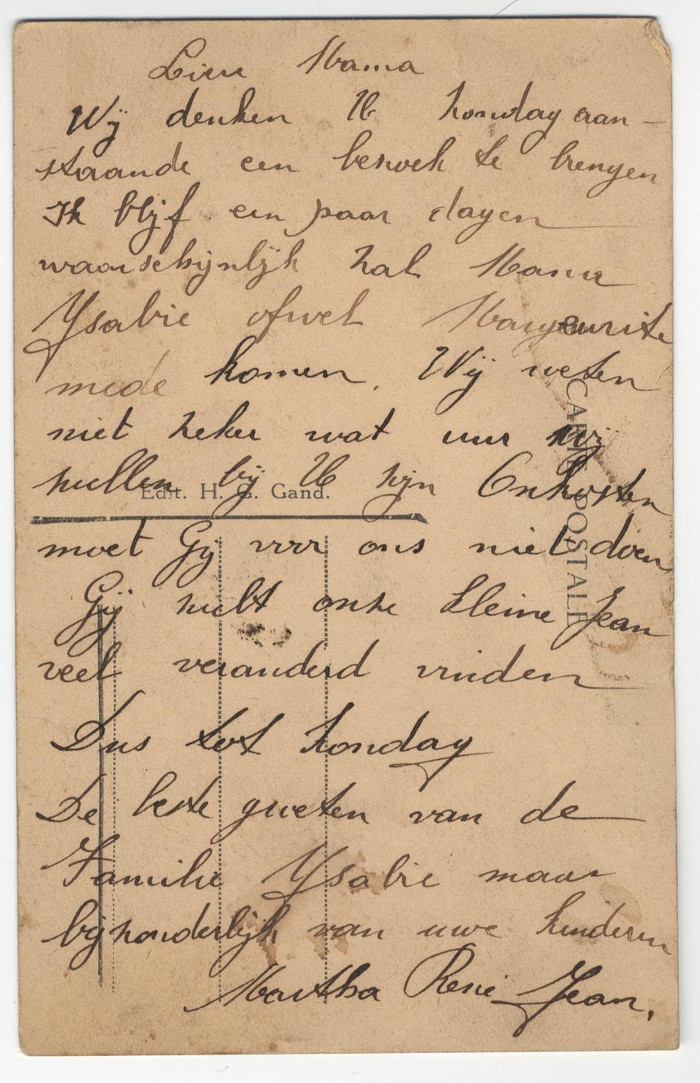 Lieve Mama
Wij denken U Zondag aan-
staande een bezoek te brengen
Ik blijf een paar dagen
waarschijnlijk zal Mama
Ysabie ofwel Margeurite
mede komen. Wij weten
niet zeker wat uur wij
zullen bij U zijn Onkosten
Edit. H. G. Gand.
CARTE POSTALE
moet Gij voor ons niet doen
Gij zult onze kleine Jean
veel veranderd vinden
Dus tot Zondag
De beste groeten van de
Familie Ysabie maar
bijzonderlijk van uwe kinderen
Martha René Jean.